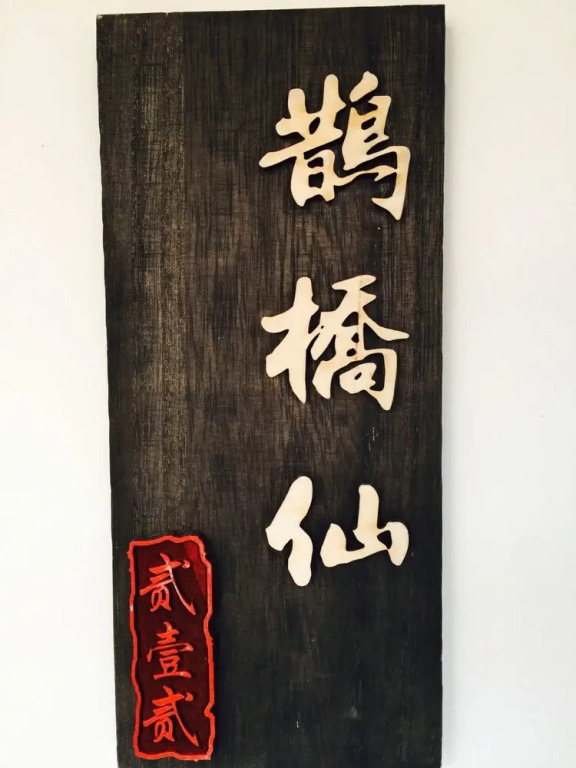 鵲橋仙
贰壹贰